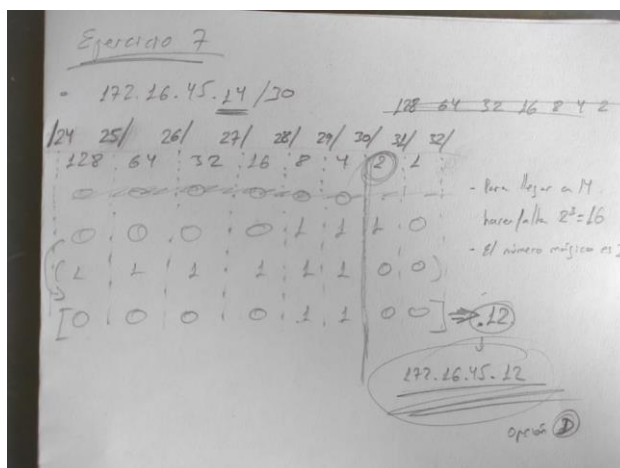 Ejercicio 7
- 172.16.45.14 /30
128 64 32 16 8 4 2
/24 25/ 26/ 27/ 28/ 29/ 30/ 31/ 32/
128 64 32 16 8 4 2 1
0 0 0 0 0 0
0 0 0 0 1 1 1 0
(1 1 1 1 1 1 0 0)
[0 0 0 0 1 1 0 0] ⇒ .12
- Para llegar a 14
hacen falta 2³=16
- El número mágico es
172.16.45.12
opción D